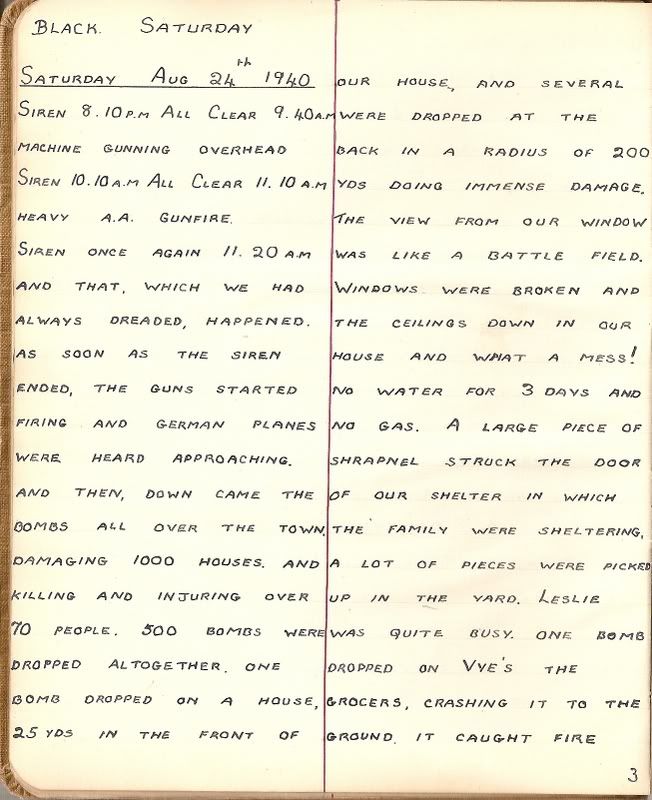 BLACK. SATURDAY
SATURDAY AUG 24th 1940
SIREN 8.10 P.M ALL CLEAR 9.40 A.M
MACHINE GUNNING OVERHEAD
SIREN 10.10 A.M ALL CLEAR 11.10 A.M
HEAVY A.A. GUNFIRE.
SIREN ONCE AGAIN 11.20 A.M
AND THAT, WHICH WE HAD
ALWAYS DREADED, HAPPENED.
AS SOON AS THE SIREN
ENDED, THE GUNS STARTED
FIRING AND GERMAN PLANES
WERE HEARD APPROACHING.
AND THEN, DOWN CAME THE
BOMBS ALL OVER THE TOWN.
DAMAGING 1000 HOUSES. AND
KILLING AND INJURING OVER
70 PEOPLE. 500 BOMBS WERE
DROPPED ALTOGETHER. ONE
BOMB DROPPED ON A HOUSE,
25 YDS IN THE FRONT OF
OUR HOUSE, AND SEVERAL
WERE DROPPED AT THE
BACK IN A RADIUS OF 200
YDS DOING IMMENSE DAMAGE.
THE VIEW FROM OUR WINDOW
WAS LIKE A BATTLE FIELD.
WINDOWS WERE BROKEN AND
THE CEILINGS DOWN IN OUR
HOUSE AND WHAT A MESS!
NO WATER FOR 3 DAYS AND
NO GAS. A LARGE PIECE OF
SHRAPNEL STRUCK THE DOOR
OF OUR SHELTER IN WHICH
THE FAMILY WERE SHELTERING,
A LOT OF PIECES WERE PICKED
UP IN THE YARD. LESLIE
WAS QUITE BUSY. ONE BOMB
DROPPED ON VYE'S THE
GROCERS, CRASHING IT TO THE
GROUND. IT CAUGHT FIRE
3